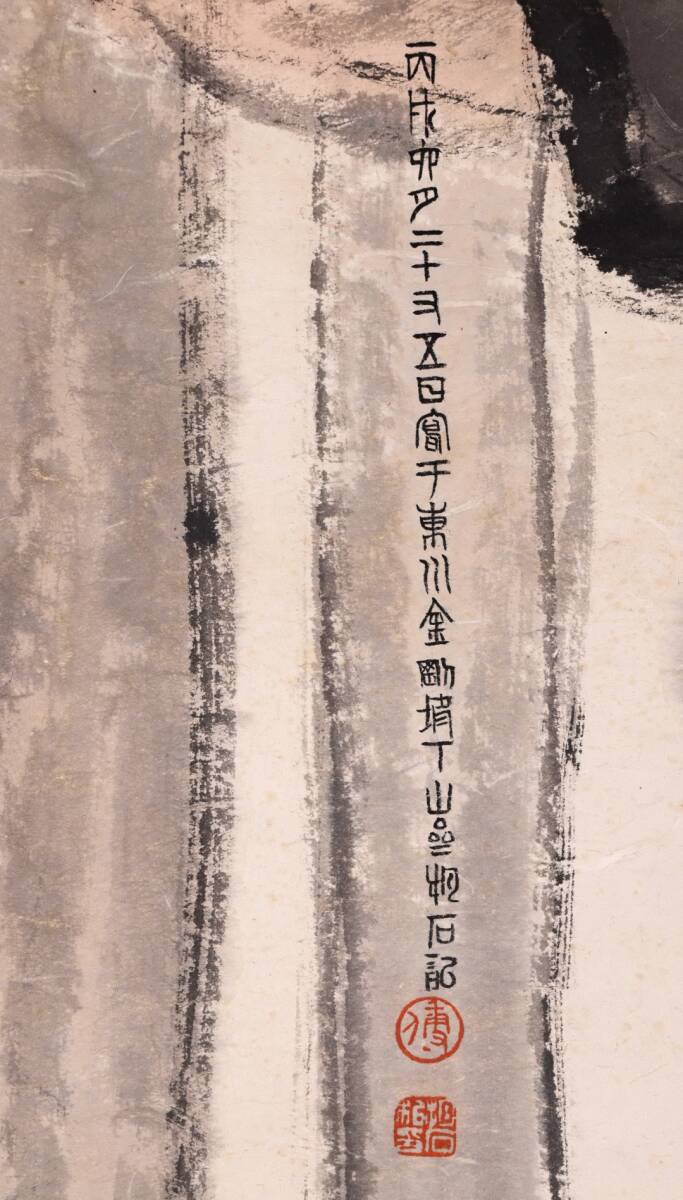 丙戌六月二十又五日寫于東川金剛坡下山齋抱石記
傅